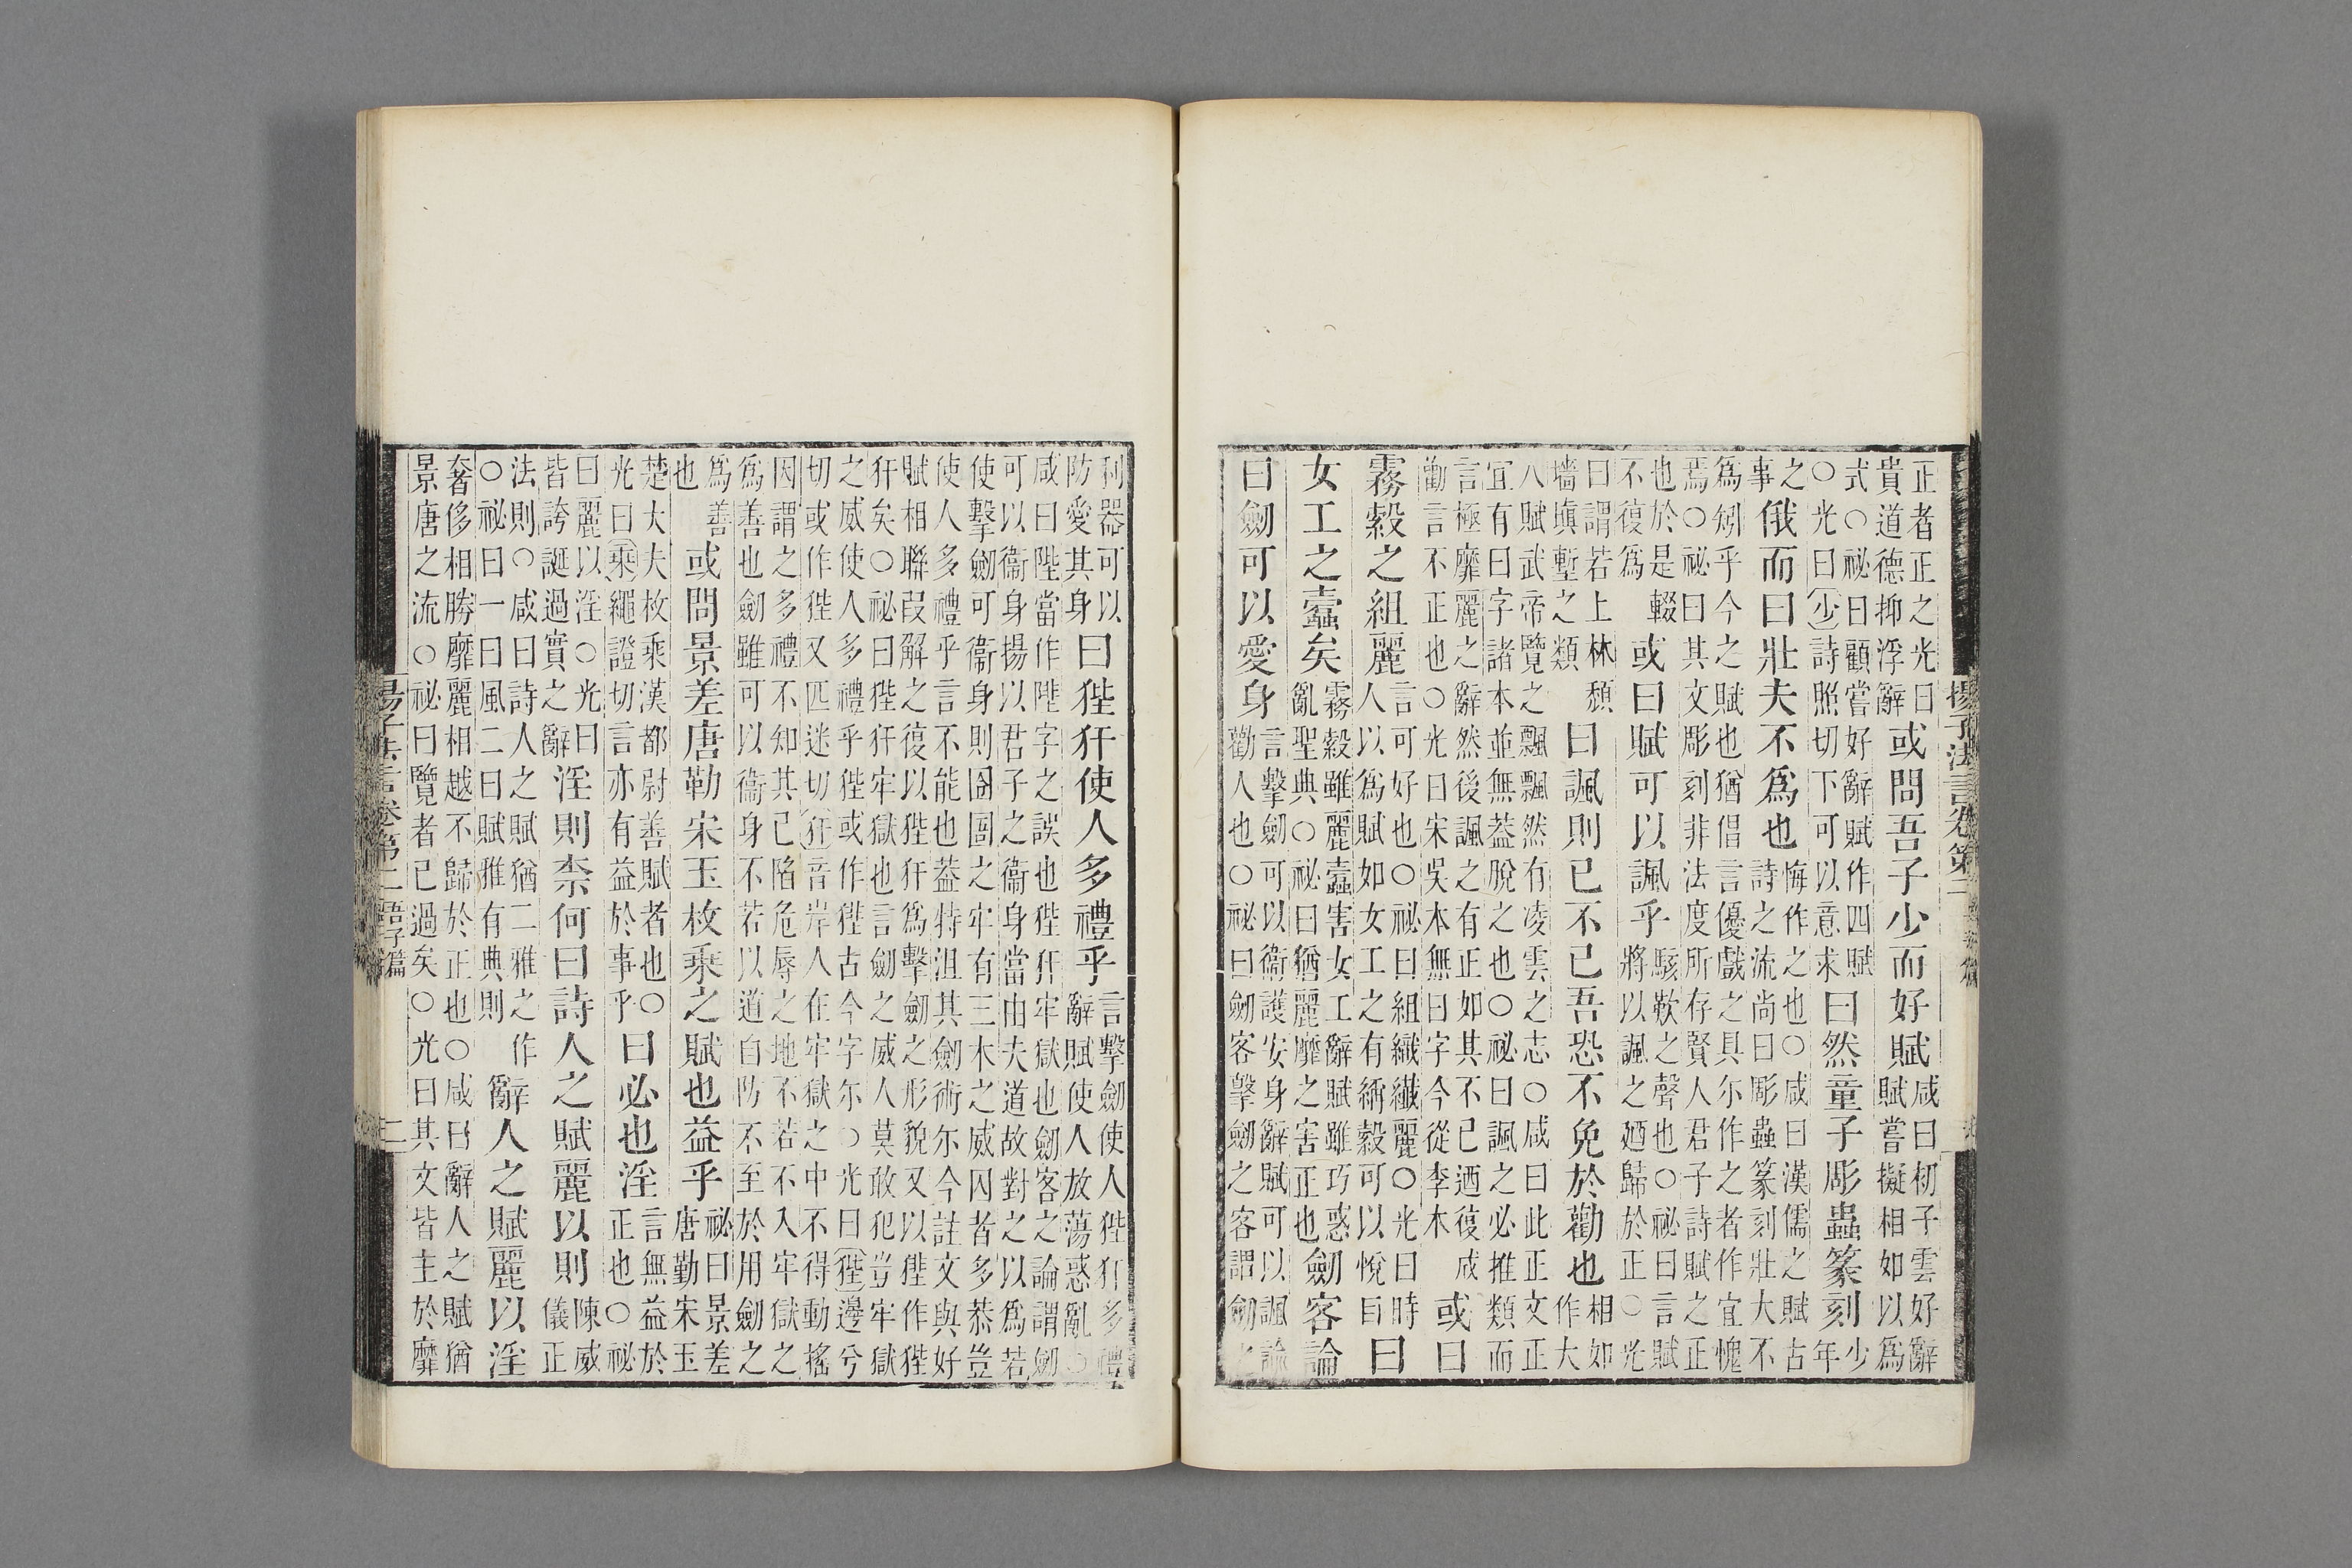 正者正之光曰
貴道德抑浮辭
或問吾子少而好賦
咸曰初子雲好辭
賦嘗擬相如以爲
式○祕曰顧嘗好辭賦作四賦
○光曰少詩照切下可以意求
曰然童子彫蟲篆刻
少
年
之
事
俄而曰壯夫不爲也
悔作之也○咸曰漢儒之賦古
詩之流尚曰彫蟲篆刻壯大不
爲矧乎今之賦也猶倡言優戲之具尓作之者作宜愧
焉○祕曰其文彫刻非法度所存賢人君子詩賦之正
也於是輟
不復爲
或曰賦可以諷乎
駭歎之聲也○祕曰言賦
將以諷之廼歸於正○光
曰謂若上林頽
墻塡塹之類
曰諷則已不已吾恐不免於勸也
相如
作大
人賦武帝覽之飄飄然有凌雲之志○咸曰此正文正
宜有曰字諸本並無葢脫之也○祕曰諷之必推類而
言極靡麗之辭然後諷之有正如其不已迺復成
勸言不正也○光曰宋吳本無曰字今從李本
或曰
霧縠之組麗
言可好也○祕曰組織纖麗○光曰時
人以爲賦如女工之有綃縠可以悅目
曰
女工之蠹矣
霧縠雖麗蠹害女工辭賦雖巧惑
亂聖典○祕曰猶麗靡之害正也
劒客論
曰劒可以愛身
言擊劒可以衞護安身辭賦可以諷諭
勸人也○祕曰劒客擊劒之客謂劒
揚子法言卷第二
利器可以
防愛其身
曰狴犴使人多禮乎
言擊劒使人狴犴多禮
辭賦使人放蕩惑亂○
咸曰陛當作陛字之誤也狴犴牢獄也劒客之論謂劒
可以衞身揚以君子之衞身當由夫道故對之以爲若
使擊劒可衞身則囹圄之牢有三木之威囚者多恭豈
使人多禮乎言不能也葢特沮其劒術尓今註文與好
賦相聯叚解之復以狴犴爲擊劒之形貌又以狴作狴
犴矣○祕曰狴犴牢獄也言劒之威人莫敢犯豈牢獄
之威使人多禮乎狴或作狴古今字尓○光曰狴邊兮
切或作狴又匹迷切犴音岸人在牢獄之中不得動搖
因謂之多禮不知其已陷危辱之地不若不入牢獄之
爲善也劒雖可以衞身不若以道自防不至於用劒之
爲善
也
或問景差唐勒宋玉枚乘之賦也益乎
祕曰景差
唐勤宋玉
楚大夫枚乘漢都尉善賦者也○
光曰乘繩證切言亦有益於事乎
曰必也淫
言無益於
正也○祕
曰麗以淫○光曰
皆誇誕過實之辭
淫則柰何曰詩人之賦麗以則
陳威
儀正
法則○咸曰詩人之賦猶二雅之作
○祕曰一曰風二曰賦雅有典則
辭人之賦麗以淫
奢侈相勝靡麗相越不歸於正也○咸曰辭人之賦猶
景唐之流○祕曰覽者已過矣○光曰其文皆主於靡
揚子法言卷第二
吾子篇
二